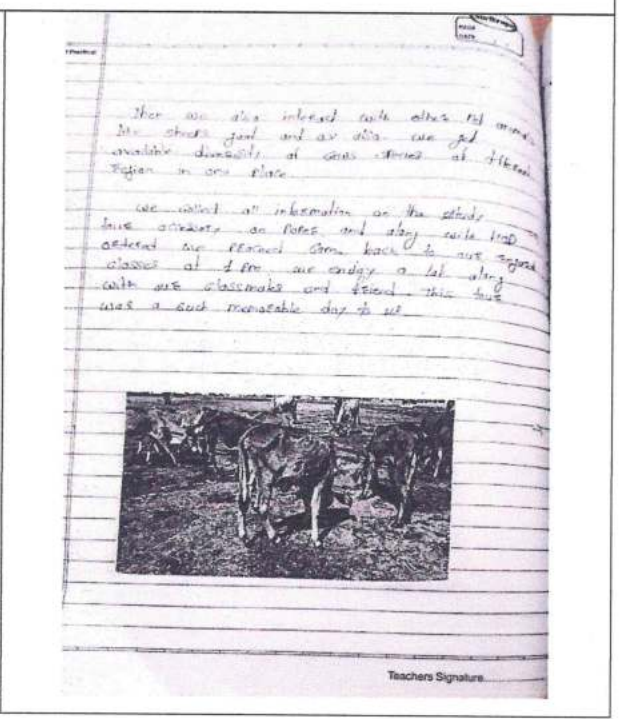 PAGE
DATE
Then we also interact with other Pet animals
like sheeps goat and ox also we get
available diversity of cows species at different
region in one place
we collect all information on the study
tour on Notes and along with
we reached come back to our
classes at 1 Pm we enjoy a lot along
with our classmates and friend this tour
was a such memorable day to us
Teachers Signature